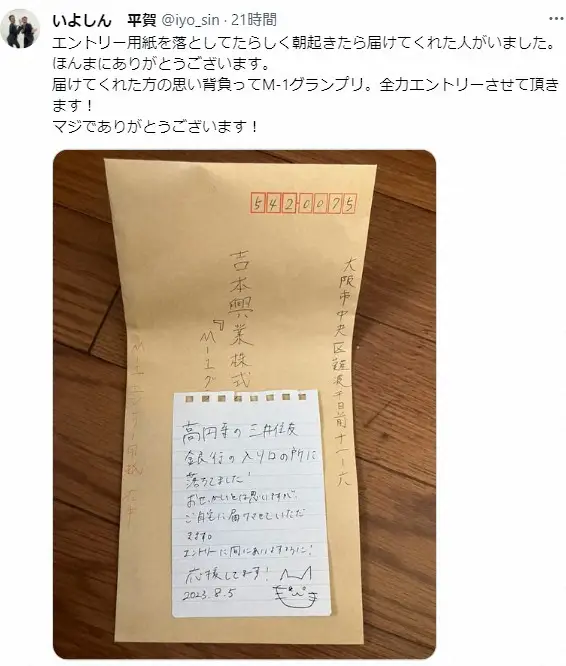 いよしん　平賀 @iyo_sin・21時間
エントリー用紙を落としてたらしく朝起きたら届けてくれた人がいました。
ほんまにありがとうございます。
届けてくれた方の思い背負ってM-1グランプリ。全力エントリーさせて頂き
ます！
マジでありがとうございます！
542-0075
大阪市中央区難波千日前十一-六
吉本興業株式
『M-1グ
高円寺の三井住友
銀行の入り口の所に
落ちてました!
おせっかいとは思いますが、
ご自宅に届けさせていただ
きます。
エントリーに間にあいますように!
応援してます!
2023.8.5